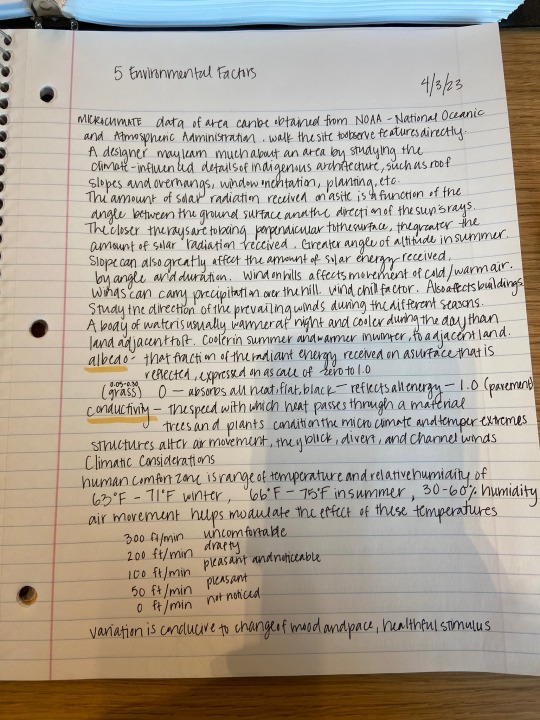 5 Environmental Factors
4/3/23
MICROCLIMATE data of area can be obtained from NOAA - National Oceanic
and Atmospheric Administration. walk the site to observe features directly.
A designer may learn much about an area by studying the
climate-influenced details of indigenous architecture, such as roof
slopes and overhangs, window orientation, planting, etc.
The amount of solar radiation received on a site is a function of the
angle between the ground surface and the direction of the sun's rays.
The closer the rays are to being perpendicular to the surface, the greater the
amount of solar radiation received. Greater angle of altitude in summer.
Slope can also greatly affect the amount of solar energy received,
by angle and duration. Wind on hills affects movement of cold/warm air.
Winds can carry precipitation over the hill. Wind chill factor. Also affects buildings.
Study the direction of the prevailing winds during the different seasons.
A body of water is usually warmer at night and cooler during the day than
land adjacent to it. Cooler in summer and warmer in winter, to adjacent land.
albedo - that fraction of the radiant energy received on a surface that is
reflected, expressed on a scale of zero to 1.0
0.05-0.30
(grass) 0 - absorbs all heat, flat, black - reflects all energy - 1.0 (pavement)
conductivity - the speed with which heat passes through a material
trees and plants condition the micro climate and temper extremes
structures alter air movement, they block, divert, and channel winds
Climatic Considerations
human comfort zone is range of temperature and relative humidity of
63°F - 71°F winter, 66°F - 75°F in summer, 30-60% humidity
air movement helps modulate the effect of these temperatures
300 ft/min uncomfortable
200 ft/min drafty
100 ft/min pleasant and noticeable
50 ft/min pleasant
0 ft/min not noticed
variation is conducive to change of mood and pace, healthful stimulus